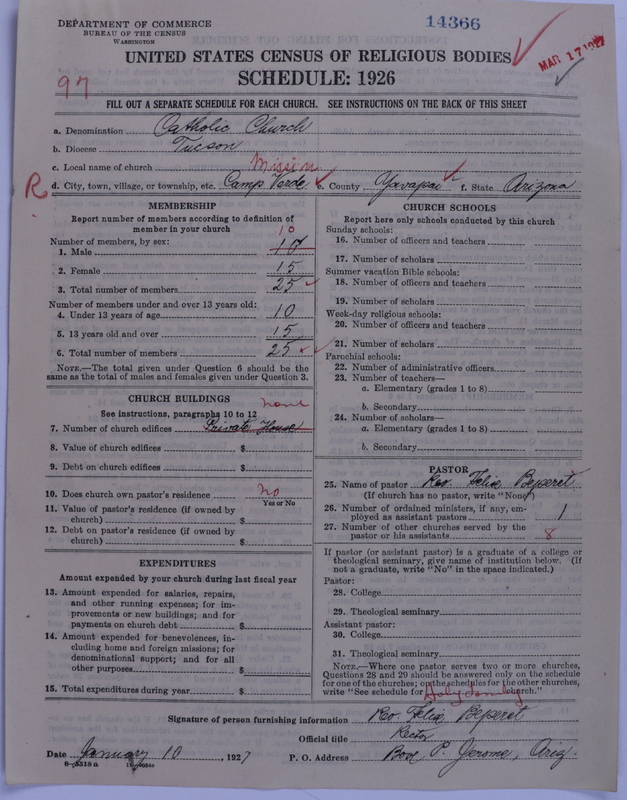 DEPARTMENT OF COMMERCE
BUREAU OF THE CENSUS
WASHINGTON
14366
MAR 17 1927
UNITED STATES CENSUS OF RELIGIOUS BODIES
SCHEDULE: 1926
97
FILL OUT A SEPARATE SCHEDULE FOR EACH CHURCH. SEE INSTRUCTIONS ON THE BACK OF THIS SHEET
a. Denomination Catholic Church
b. Diocese Tucson
c. Local name of church Mission
R
d. City, town, village, or township, etc. Camp Verde e. County Yavapai f. State Arizona
MEMBERSHIP
Report number of members according to definition of
member in your church
Number of members, by sex: 10
1. Male
2. Female 15
3. Total number of members 25
Number of members under and over 13 years old:
4. Under 13 years of age 10
5. 13 years old and over 15
6. Total number of members 25
NOTE.—The total given under Question 6 should be
same as the total of males and females given under Question 3.
CHURCH BUILDINGS
See instructions, paragraphs 10 to 12 none
7. Number of church edifices Private House
8. Value of church edifices $
9. Debt on church edifices $
10. Does church own pastor's residence No
Yes or No
11. Value of pastor's residence (if owned by
church) $
12. Debt on pastor's residence (if owned by
church) $
EXPENDITURES
Amount expended by your church during last fiscal year
13. Amount expended for salaries, repairs,
and other running expenses; for im-
provements or new buildings; and for
payments on church debt $
14. Amount expended for benevolences, in-
cluding home and foreign missions; for
denominational support; and for all
other purposes $
15. Total expenditures during year $
CHURCH SCHOOLS
Report here only schools conducted by this church
Sunday schools:
16. Number of officers and teachers
17. Number of scholars
Summer vacation Bible schools:
18. Number of officers and teachers
19. Number of scholars
Week-day religious schools:
20. Number of officers and teachers
21. Number of scholars
Parochial schools:
22. Number of administrative officers
23. Number of teachers—
a. Elementary (grades 1 to 8)
b. Secondary
24. Number of scholars—
a. Elementary (grades 1 to 8)
b. Secondary
PASTOR
25. Name of pastor Rev. Felix
(If church has no pastor, write "None")
26. Number of ordained ministers, if any, em-
ployed as assistant pastors 1
27. Number of other churches served by the
pastor or his assistants 8
If pastor (or assistant pastor) is a graduate of a college or
theological seminary, give name of institution below. (If
not a graduate, write "No" in the space indicated.)
Pastor:
28. College
29. Theological seminary
Assistant pastor:
30. College
31. Theological seminary
NOTE.—Where one pastor serves two or more churches,
Questions 28 and 29 should be answered only on the schedule
for one of the churches; on the schedules for the other churches,
write "See schedule for Holy Family church."
Signature of person furnishing information Rev. Felix
Official title Rector
Date January 10, 1927 P. O. Address Box P. Jerome, Ariz.